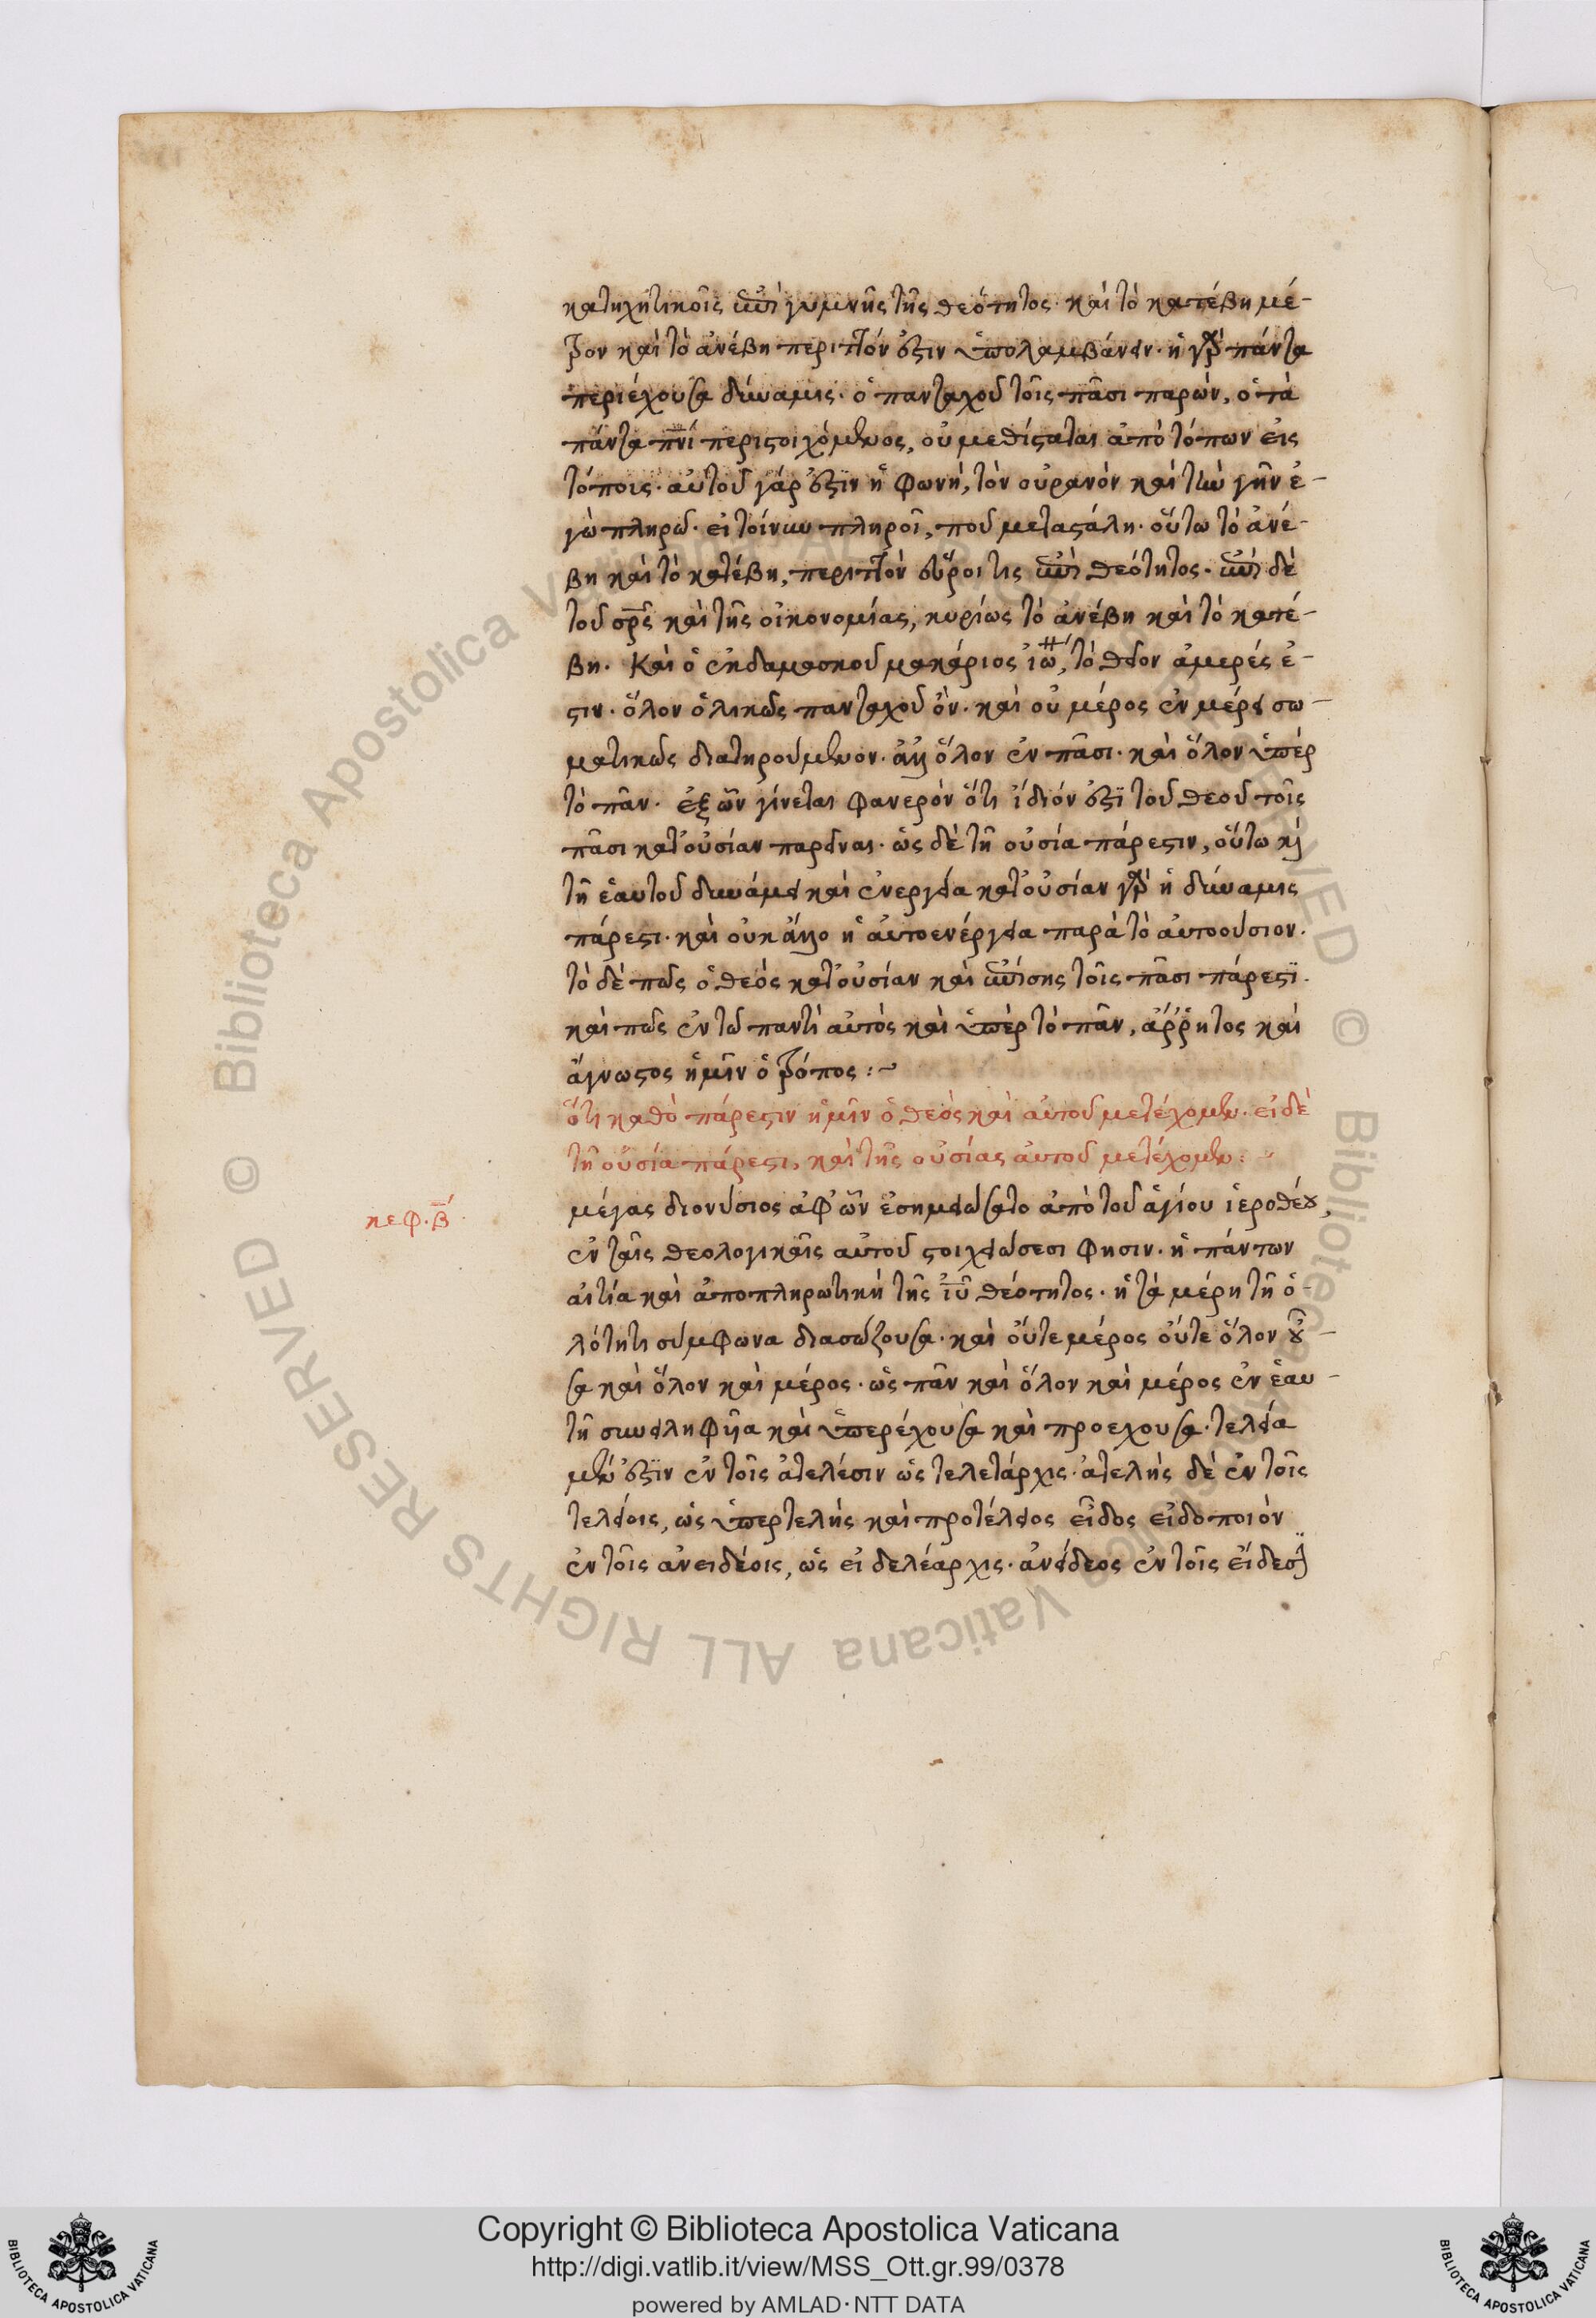 κατηχητικοῖς ἐπὶ γυμνῆς τῆς θεότητος· καὶ τὸ κατέβη μέ-
τρον καὶ τὸ ἀνέβη περιττόν ἐστιν ὑπολαμβάνειν· ἡ γὰρ πάντα
περιέχουσα δύναμις· ὁ πανταχοῦ τοῖς πᾶσι παρών, ὁ τὰ
πάντα πνί περιστοιχόμενος, οὐ μεθίσταται ἀπὸ τόπων εἰς
τόποις· αὐτοῦ γάρ ἐστιν ἡ φωνή, τὸν οὐρανὸν καὶ τὴν γῆν ἐ-
γὼ πληρῶ· εἰ τοίνυν πληροῖ, ποῦ μεταστάλη· οὕτω τὸ ἀνέ-
βη καὶ τὸ κατέβη, περιττὸν εὕροι τις ἐπὶ θεότητος· ἐπὶ δὲ
τοῦ σρς καὶ τῆς οἰκονομίας, κυρίως τὸ ἀνέβη καὶ τὸ κατέ-
βη. Καὶ ὁ ἐκ δαμασκοῦ μακάριος ἰω, τὸ θεῖον ἀμερές ἐ-
στιν· ὅλον ὁλικῶς πανταχοῦ ὄν· καὶ οὐ μέρος ἐν μέρει σω-
ματικῶς διατηρούμενον· ἀλλ ὅλον ἐν πᾶσι· καὶ ὅλον ὑπὲρ
τὸ πᾶν· ἐξ ὧν γίνεται φανερὸν ὅτι ἴδιόν ἐστι τοῦ θεοῦ τοῖς
πᾶσι κατ οὐσίαν παρεῖναι· ὡς δὲ τῆ οὐσία πάρεστιν, οὕτω κὶ
τῆ ἑαυτοῦ δυνάμει καὶ ἐνεργεία κατ οὐσίαν γὰρ ἡ δύναμις
πάρεστι· καὶ οὐκ ἄλλο ἡ αὐτοενέργεια παρὰ τὸ αὐτοούσιον.
τὸ δὲ πῶς ὁ θεός κατ οὐσίαν καὶ ἐπίσης τοῖς πᾶσι πάρεστι.
καὶ πῶς ἐν τῶ παντὶ αὐτὸς καὶ ὑπὲρ τὸ πᾶν, ἄῤῥητος καὶ
ἄγνωστος ἡμῖν ὁ τρόπος:~
ὅτι καθὸ πάρεστιν ἡμῖν ὁ θεὸς καὶ αὐτοῦ μετέχομεν· εἰ δὲ
τῆ οὐσία πάρεστι, καὶ τῆς οὐσίας αὐτοῦ μετέχομεν:~
κεφ. β·
μέγας διονύσιος ἀφ ὧν ἐσημειώσατο ἀπὸ τοῦ ἁγίου ἱεροθέου,
ἐν ταῖς θεολογικαῖς αὐτοῦ στοιχειώσεσι φησιν· ἡ πάντων
αἰτία καὶ ἀποπληρωτικὴ τῆς ἰῦ θεότητος· ἡ τὰ μέρη τῆ ὁ-
λότητι σύμφωνα διασώζουσα· καὶ οὔτε μέρος οὔτε ὅλον οὖ-
σα καὶ ὅλον καὶ μέρος· ὡς πᾶν καὶ ὅλον καὶ μέρος ἐν ἑαυ-
τῆ συνειληφῆα καὶ ὑπερέχουσα καὶ προεχουσα· τελεία
μὲν ἐστιν ἐν τοῖς ἀτελέσιν ὡς τελετάρχις· ἀτελὴς δὲ ἐν τοῖς
τελείοις, ὡς ὑπερτελὴς καὶ προτέλειος εἶδος εἰδοποιὸν
ἐν τοῖς ἀνειδέοις, ὡς εἰ δελέαρχις· ἀνείδεος ἐν τοῖς εἴδεσι
Copyright © Biblioteca Apostolica Vaticana
http://digi.vatlib.it/view/MSS_Ott.gr.99/0378
powered by AMLAD·NTT DATA